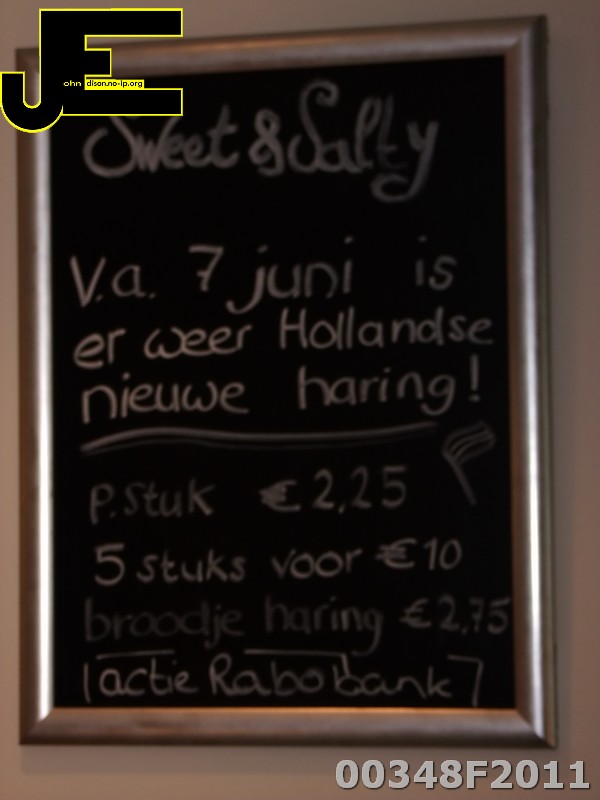 JE
John Edison.no-ip.org
Sweet & Salty
V.a. 7 juni is
er weer Hollandse
nieuwe haring!
p.stuk € 2,25
5 stuks voor € 10
broodje haring € 2,75
actie Rabobank
00348F2011